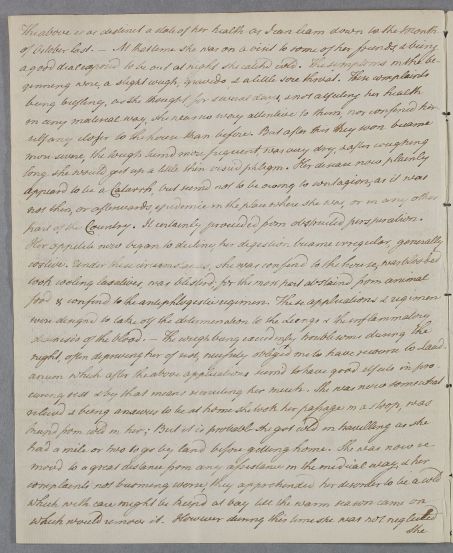 The above is as distinct a state of her health as I can learn down to the month
of October last. — At that time she was on a visit to some of her friends & being
a good deal exposed to be out at night she catched cold. The symptoms in the be-
ginning were, a slight cough, & a little sore throat. These complaints
being trifling, as she thought for several days, & not affecting her health
in any material way, she was no way attentive to them, nor confined her-
self any closer to the house than before. But after this they soon became
more severe, the cough being more frequent was very dry, & after coughing
long, she would get up a little thin viscid phlegm. Her disease now plainly
appeared to be a Catarrh, but seemed not to be owing to contagion, as it was
not then, or afterwards, epidemic in the place where she was, or in any other
part of the Country. It certainly proceeded from obstructed perspiration.
Her appetite now began to decline, her digestion became irregular, generally
costive. Under these circumstances, she was confined to the house, was bled
took cooling laxatives, was blistered, for the most part abstained from animal
food & confined to the antiphlogistic regimen. These applications & regimen
were designed to take off the determination to the Lungs & the inflammatory
diathesis of the blood. — The cough being exceedingly troublesome during the
night, often depriving her of rest, obliged me to have recourse to Laud-
anum which after the above applications seemed to have good effects in pro-
curing rest & by that means recruiting her much. She was now somewhat
relieved & being anxious to be at home she took her passage in a sloop, was
from cold in her; But it is probable she got cold in travelling as she
had a mile or two to go by land before getting home. She was now re-
moved to a great distance from any assistance in the medical way, & her
complaints not becoming worse, they apprehended her disorder to be a cold
which with care might be keeped at bay till the warm season came on
which would remove it. However during this time she was not neglected
she